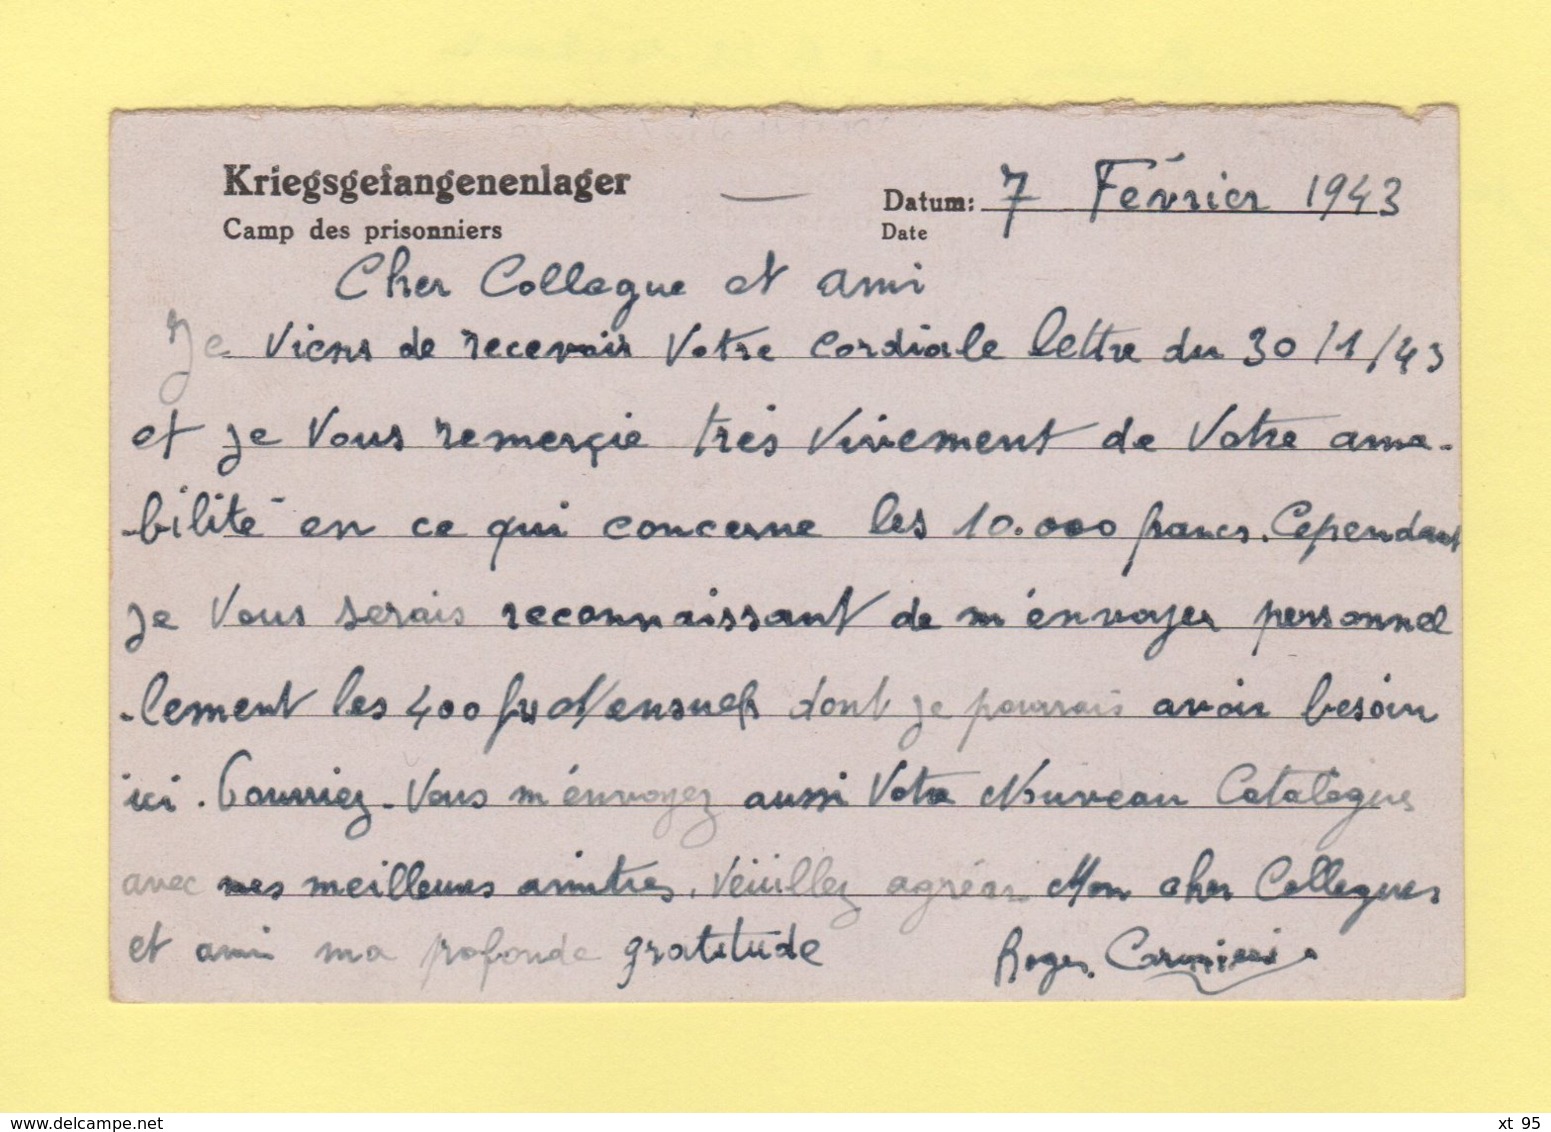 Kriegsgefangenenlager
Camp des prisonniers
Datum: 7 Février 1943
Date
Cher Collegue et ami
Je viens de recevoir Votre cordiale lettre du 30/1/43
et je Vous remerçie très vivement de Votre ama-
-bilité en ce qui concerne les 10.000 francs. Cependant
je Vous serais reconnaissant de m'envoyer personnel
-lement les 400 frs Mensuels dont je pourrais avoir besoin
ici. Pourriez-Vous m'envoyez aussi Votre Nouveau Catalogue
avec mes meilleures amitiés. Veuillez agréer Mon cher Collegues
et ami ma profonde gratitude Roger
xt 95
www.delcampe.net